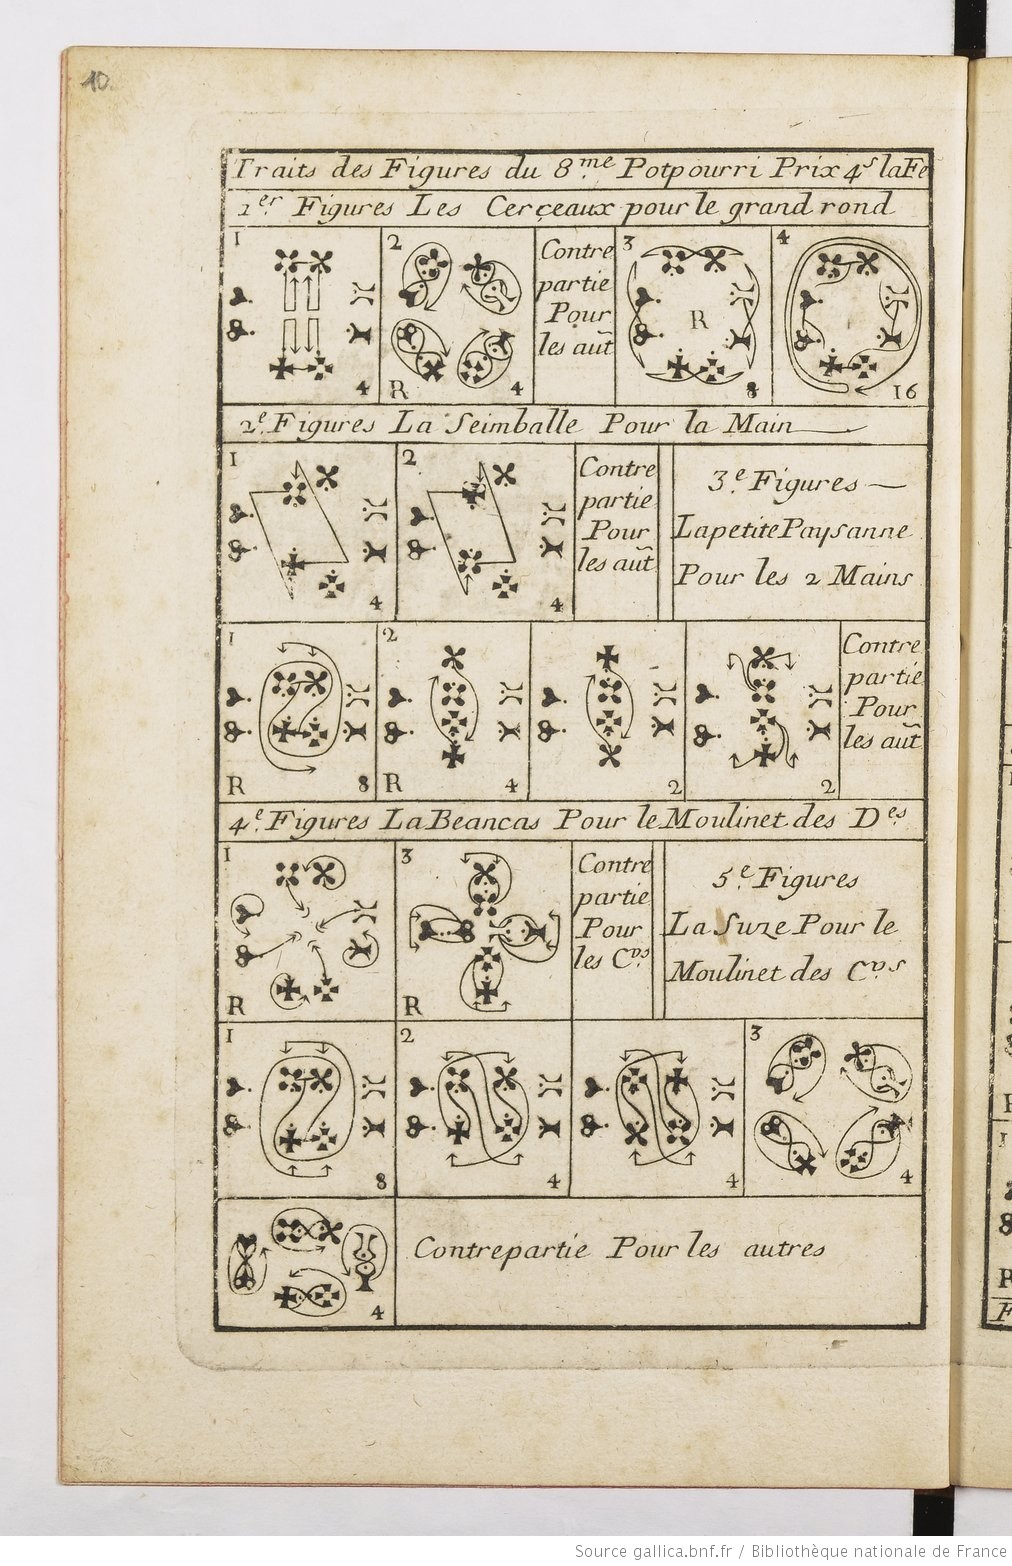 10.
Traits des Figures du 8.me Potpourri Prix 4s la Fe
1er. Figures Les Cerçeaux pour le grand rond
1
2
R
4
4
Contre
partie
Pour
les aut
3
R
8
4
16
2e. Figures La Seimballe Pour la Main
1
4
2
4
Contre
partie
Pour
les aut
3e. Figures
La petite Paysanne
Pour les 2 Mains
1
R 8
2
R 4
2
2
Contre
partie
Pour
les aut
4e. Figures La Beancas Pour le Moulinet des Des
1
R
3
R
Contre
partie
Pour
les Cvs
5e. Figures
La Suze Pour le
Moulinet des Cvs
1
8
2
4
4
3
4
4
Contrepartie Pour les autres
Source gallica.bnf.fr / Bibliothèque nationale de France